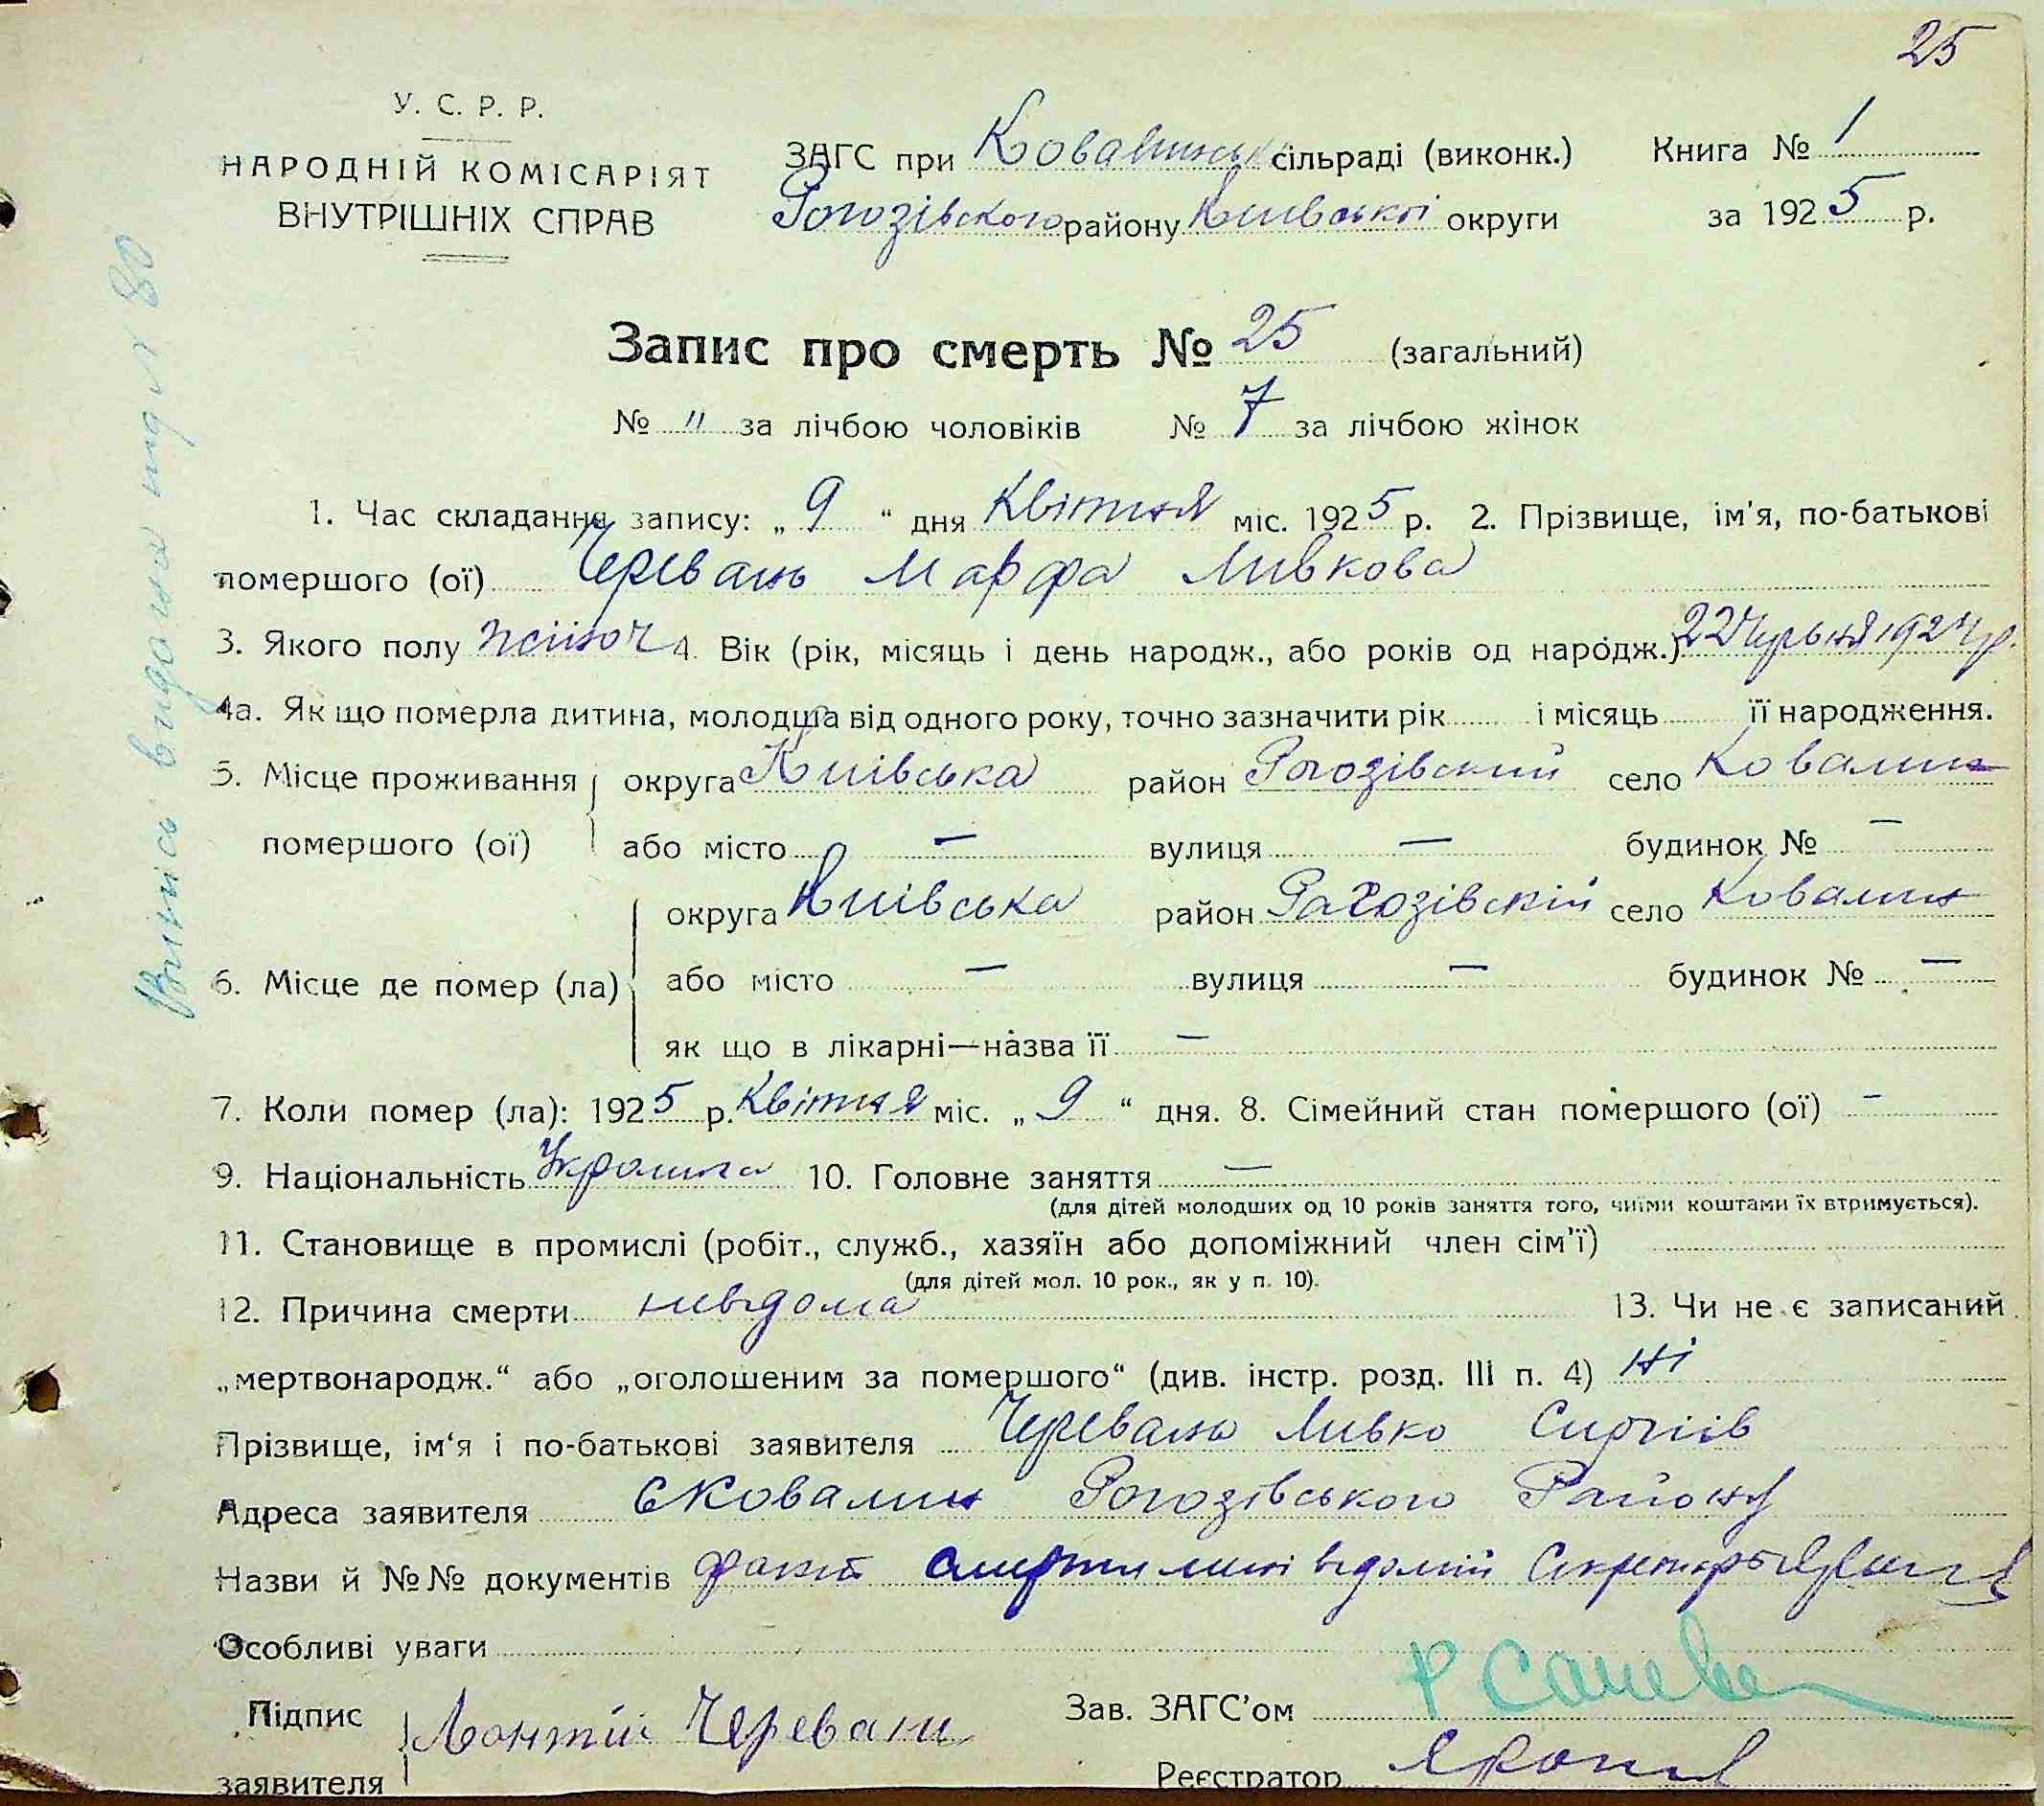 25
У. С. Р. Р.
НАРОДНІЙ КОМІСАРІЯТ
ВНУТРІШНІХ СПРАВ
ЗАГС при Ковалинськ сільраді (виконк.)
Рогозівского району Київської округи
Книга № 1
за 1925 р.
Запис про смерть № 25 (загальний)
№ " за лічбою чоловіків № 7 за лічбою жінок
1. Час складання запису: „ 9 “ дня Квітня міс. 1925 р. 2. Прізвище, ім'я, по-батькові
помершого (ої) Черевань Марфа Ливкова
3. Якого полу жіноч 4. Вік (рік, місяць і день народж., або років од народж.) 22 Червня 1924 р.
4а. Як що померла дитина, молодша від одного року, точно зазначити рік і місяць її народження.
5. Місце проживання округа Київська район Рогозівский село Ковалин
помершого (ої) або місто — вулиця — будинок № —
округа Київська район Рагозівскій село Ковалин
6. Місце де помер (ла) або місто — вулиця — будинок № —
як що в лікарні—назва її —
7. Коли помер (ла): 1925 р. Квітня міс. „ 9 “ дня. 8. Сімейний стан помершого (ої) -
9. Національність 10. Головне заняття —
(для дітей молодших од 10 років заняття того, чиїми коштами їх втримується).
11. Становище в промислі (робіт., служб., хазяїн або допоміжний член сім'ї)
(для дітей мол. 10 рок., як у п. 10).
12. Причина смерти невідома 13. Чи не є записаний
„мертвонародж.“ або „оголошеним за помершого“ (див. інстр. розд. III п. 4) ні
Прізвище, ім'я і по-батькові заявителя Черевань Ливко
Адреса заявителя с Ковалин Рогозівського Району
Назви й №№ документів факт смерти мині відомий Секретарь
Особливі уваги
Підпис
заявителя
Черевань
Зав. ЗАГС'ом
Реєстратор
Випись видана под № 80